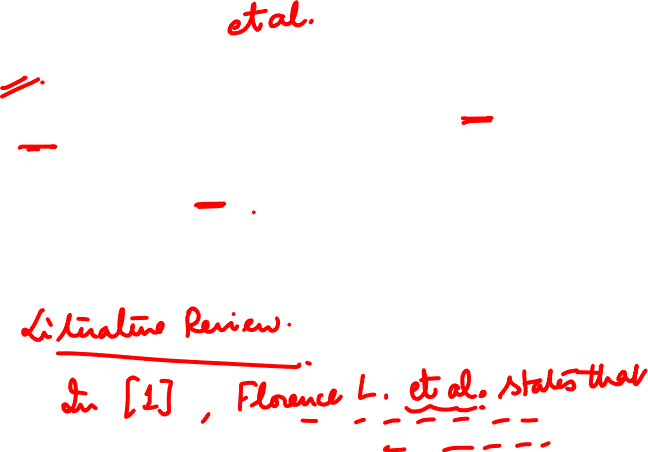 et al.
Literature Review.
In [1], Florence L. et al. states that